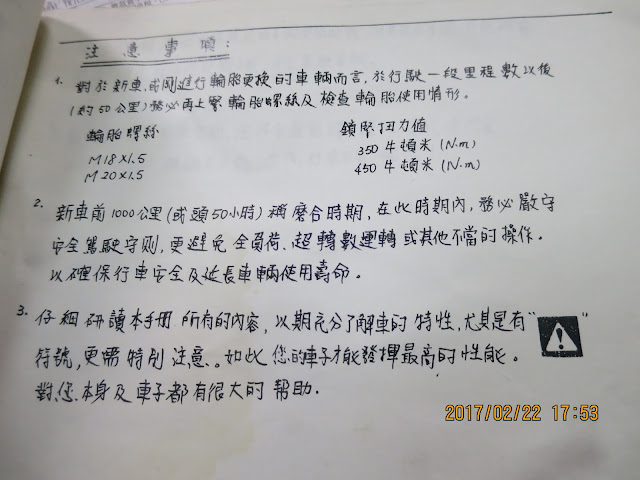 注意事項:
1. 對於新車,或剛進行輪胎更換的車輛而言,於行駛一段里程數以後
(約50公里)務必再上緊輪胎螺絲及檢查輪胎使用情形。
輪胎螺絲 鎖緊扭力值
M18X1.5 350牛頓米(N·m)
M20X1.5 450牛頓米(N·m)
2. 新車前1000公里(或頭50小時)稱磨合時期,在此時期內,務必嚴守
安全駕駛守則,更避免全負荷、超轉數運轉或其他不當的操作.
以確保行車安全及延長車輛使用壽命。
3. 仔細研讀本手冊所有的內容,以期充分了解車的特性,尤其是有"!"
符號,更需特別注意。如此您的車子才能發揮最高的性能。
對您本身及車子都有很大的幫助.
2017/02/22 17:53